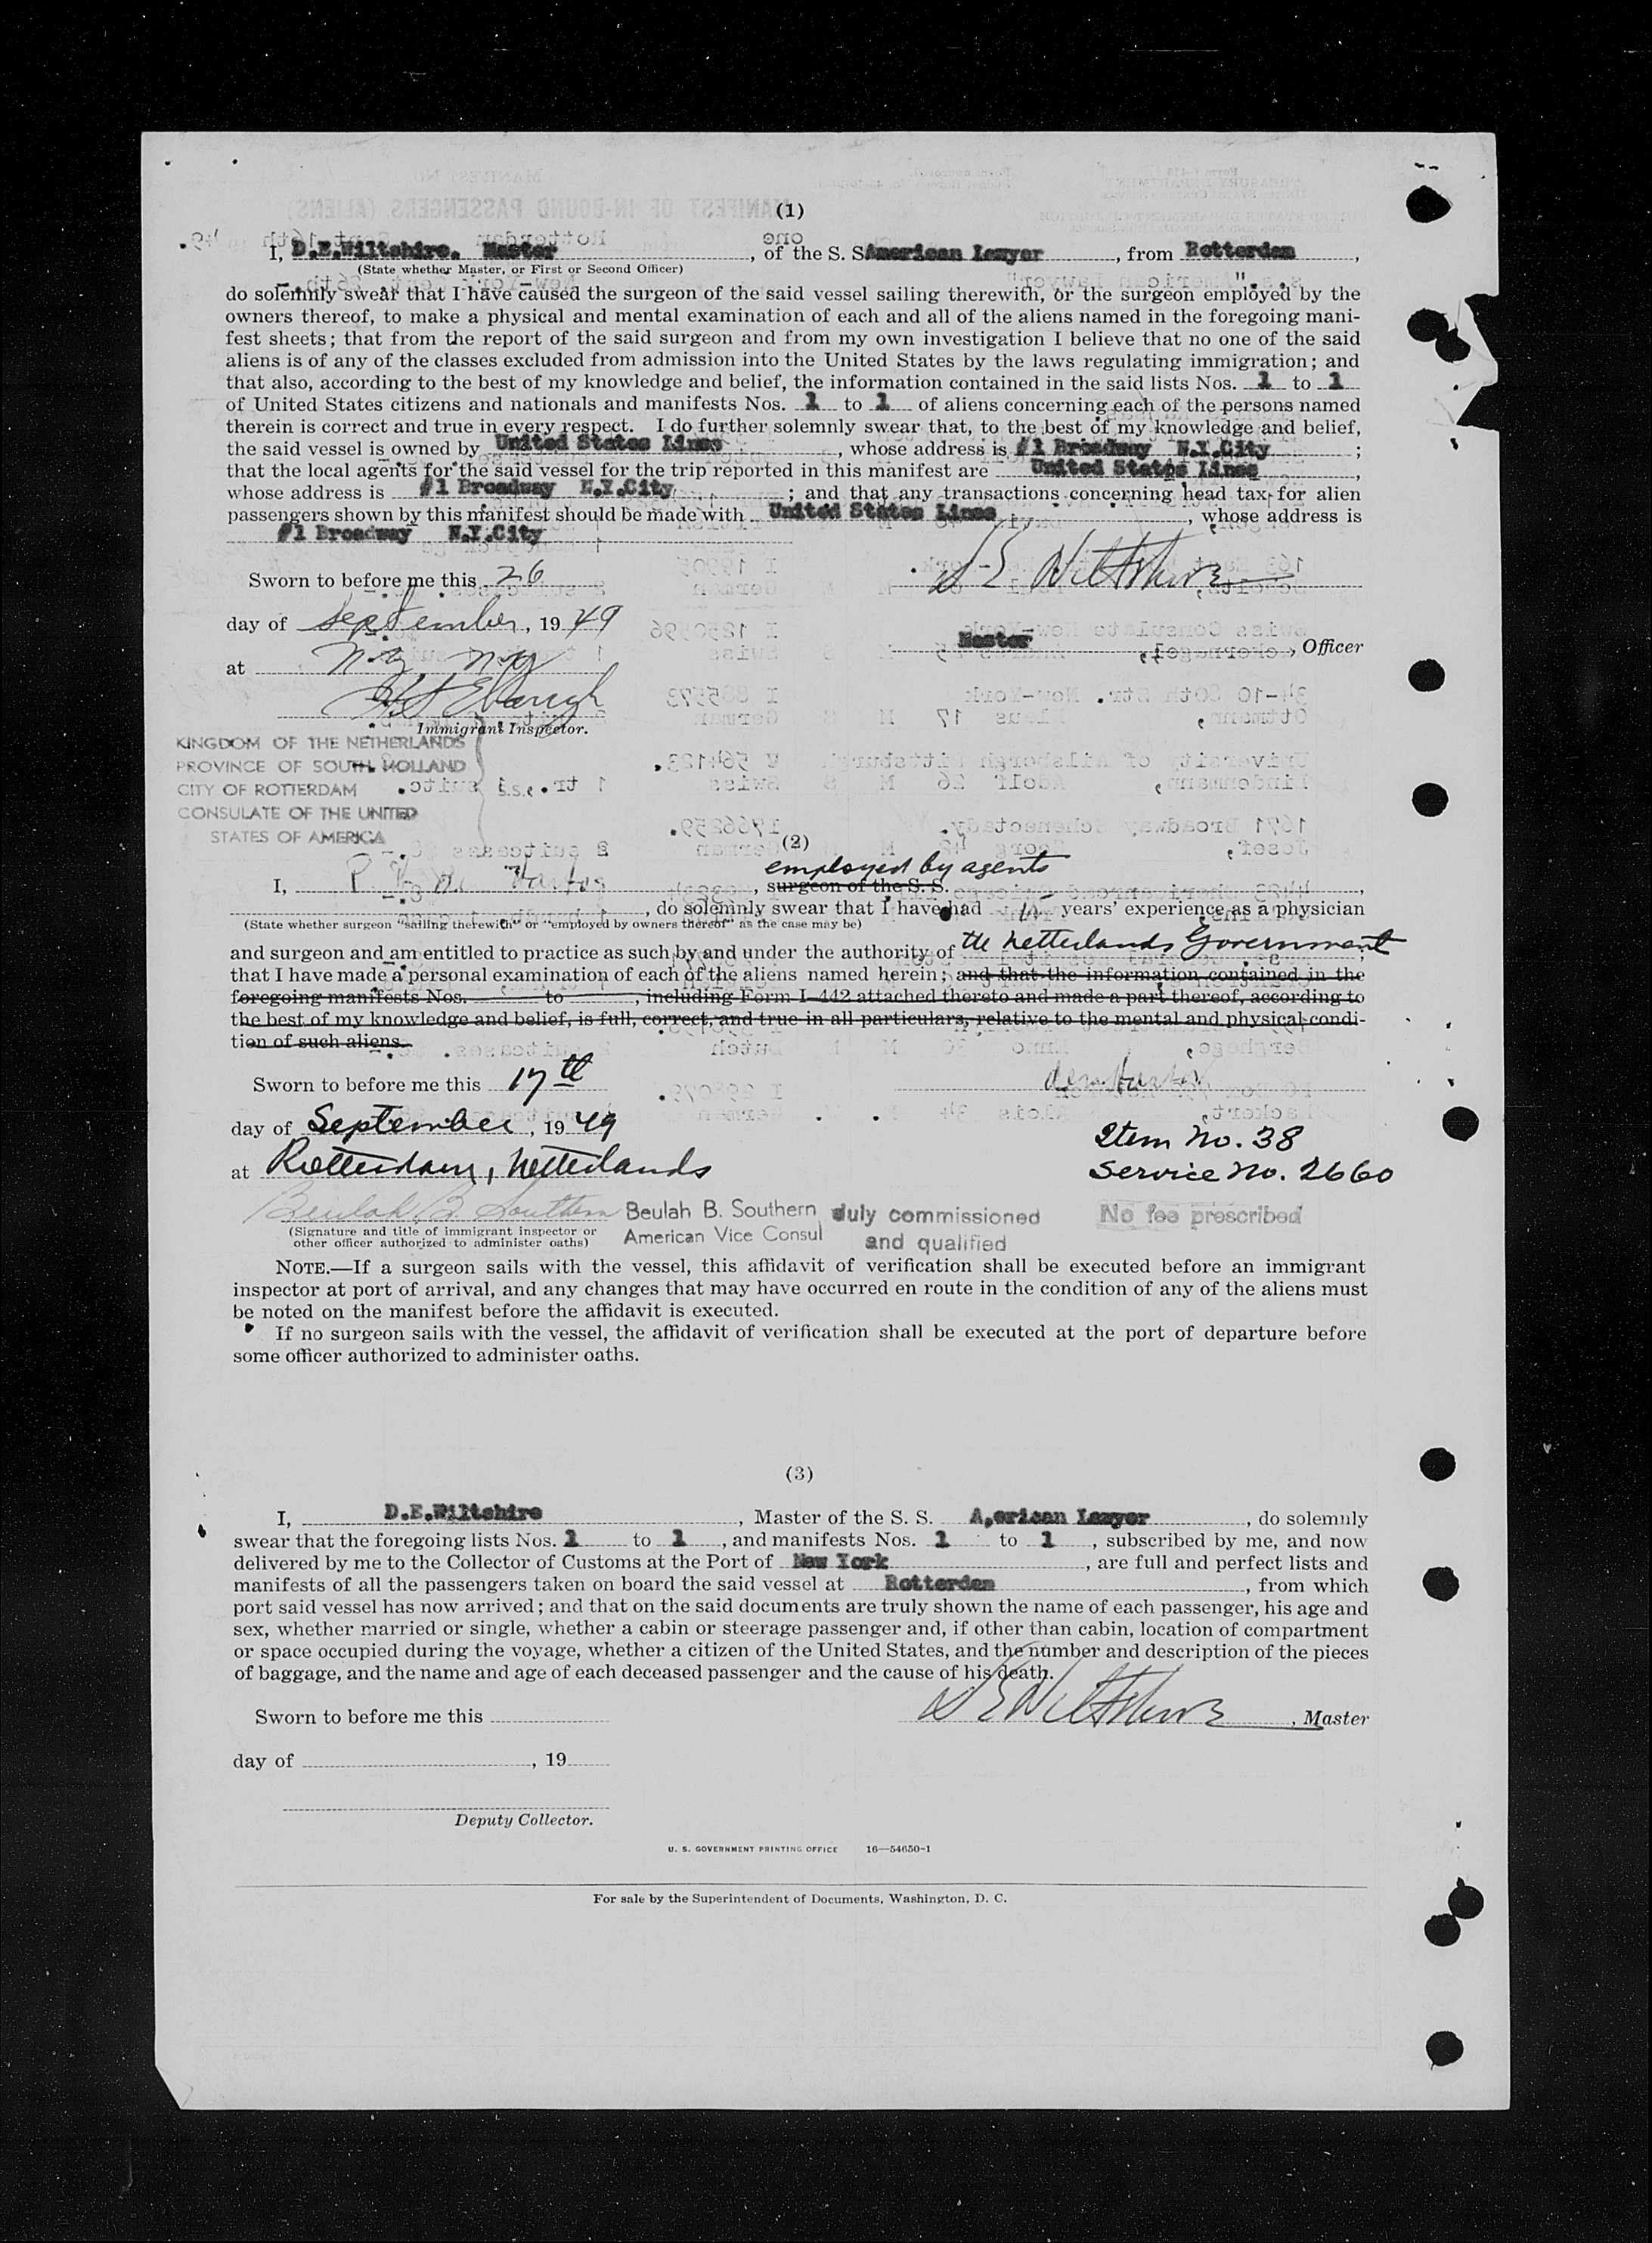 (1)
I, D.E.Wiltshire. Master, of the S. S. American Lawyer, from Rotterdam,
(State whether Master, or First or Second Officer)
do solemnly swear that I have caused the surgeon of the said vessel sailing therewith, or the surgeon employed by the
owners thereof, to make a physical and mental examination of each and all of the aliens named in the foregoing mani-
fest sheets; that from the report of the said surgeon and from my own investigation I believe that no one of the said
aliens is of any of the classes excluded from admission into the United States by the laws regulating immigration; and
that also, according to the best of my knowledge and belief, the information contained in the said lists Nos. 1 to 1
of United States citizens and nationals and manifests Nos. 1 to 1 of aliens concerning each of the persons named
therein is correct and true in every respect. I do further solemnly swear that, to the best of my knowledge and belief,
the said vessel is owned by United States Lines, whose address is #1 Broadway N.Y.City;
that the local agents for the said vessel for the trip reported in this manifest are United States Lines,
whose address is #1 Broadway N.Y.City; and that any transactions concerning head tax for alien
passengers shown by this manifest should be made with United States Lines, whose address is
#1 Broadway N.Y.City
Sworn to before me this 26
D E Wiltshire
day of September, 1949
Master, Officer
at N.Y. N.Y.
Immigrant Inspector.
KINGDOM OF THE NETHERLANDS
PROVINCE OF SOUTH HOLLAND
CITY OF ROTTERDAM S.S.
CONSULATE OF THE UNITED
STATES OF AMERICA
(2)
employed by agents
I, , surgeon of the S. S. ,
, do solemnly swear that I have had years' experience as a physician
(State whether surgeon "sailing therewith" or "employed by owners thereof" as the case may be)
and surgeon and am entitled to practice as such by and under the authority of the Netherlands Government;
that I have made a personal examination of each of the aliens named herein; and that the information contained in the
foregoing manifests Nos. to , including Form I-442 attached thereto and made a part thereof, according to
the best of my knowledge and belief, is full, correct, and true in all particulars, relative to the mental and physical condi-
tion of such aliens.
Sworn to before me this 17th
day of September, 1949
Item No. 38
at Rotterdam, Netherlands
Service No. 2660
Beulah B. Southern Beulah B. Southern duly commissioned No fee prescribed
American Vice Consul and qualified
(Signature and title of immigrant inspector or
other officer authorized to administer oaths)
NOTE.—If a surgeon sails with the vessel, this affidavit of verification shall be executed before an immigrant
inspector at port of arrival, and any changes that may have occurred en route in the condition of any of the aliens must
be noted on the manifest before the affidavit is executed.
If no surgeon sails with the vessel, the affidavit of verification shall be executed at the port of departure before
some officer authorized to administer oaths.
(3)
I, D.E.Wiltshire, Master of the S. S. A,erican Lawyer, do solemnly
swear that the foregoing lists Nos. 1 to 1, and manifests Nos. 1 to 1, subscribed by me, and now
delivered by me to the Collector of Customs at the Port of New York, are full and perfect lists and
manifests of all the passengers taken on board the said vessel at Rotterdam, from which
port said vessel has now arrived; and that on the said documents are truly shown the name of each passenger, his age and
sex, whether married or single, whether a cabin or steerage passenger and, if other than cabin, location of compartment
or space occupied during the voyage, whether a citizen of the United States, and the number and description of the pieces
of baggage, and the name and age of each deceased passenger and the cause of his death.
Sworn to before me this
D E Wiltshire, Master
day of , 19
Deputy Collector.
U. S. GOVERNMENT PRINTING OFFICE 16—54650-1
For sale by the Superintendent of Documents, Washington, D. C.